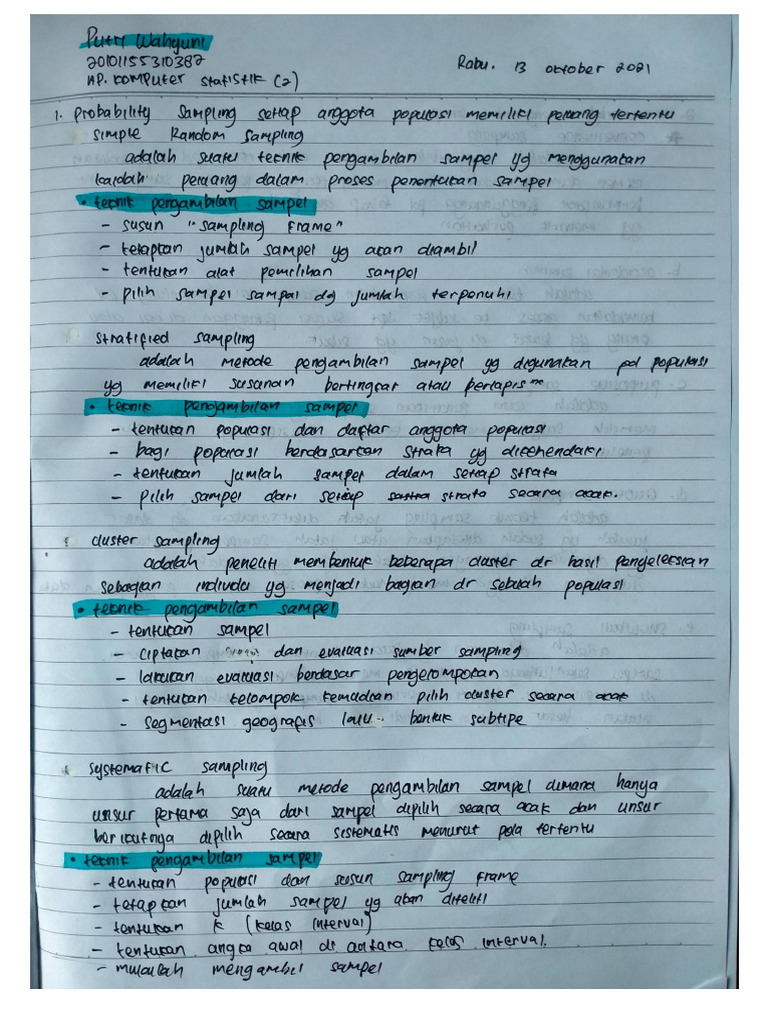 Putri Wahyuni
20101155310387
AP. Komputer Statistik (2)
Rabu. 13 Oktober 2021
1. Probability Sampling setiap anggota populasi memiliki peluang tertentu
Simple Random Sampling
adalah suatu teknik pengambilan sampel yg menggunakan
kaidah peluang dalam proses penentukan sampel
• teknik pengambilan sampel
- susun "sampling frame"
- tetapkan jumlah sampel yg akan diambil
- tentukan alat pemilihan sampel
- pilih sampel sampai dg jumlah terpenuhi
Stratified Sampling
adalah metode pengambilan sampel yg digunakan pd populasi
yg memiliki susunan bertingkat atau berlapis
• teknik pengambilan sampel
- tentukan populasi dan daftar anggota populasi
- bagi poporasi berdasarkan strata yg dikehendaki
- tentukan jumlah sampel dalam setiap strata
- pilih sampel dari setiap strata secara acak.
cluster sampling
adalah peneliti membentuk beberapa cluster dr hasil penyeleksian
sebagian individu yg menjadi bagian dr sebuah populasi
• teknik pengambilan sampel
- tentukan sampel
- ciptakan dan evaluasi sumber sampling
- lakukan evaluasi berdasar pengelompokan
- tentukan kelompok kemudian pilih cluster secara acak
- Segmentasi geografis lalu bentuk subtipe
Systematic sampling
adalah suatu metode pengambilan sampel dimana hanya
unsur pertama saja dari sampel dipilih secara acak dan unsur
berikutnya dipilih secara sistematis menurut pola tertentu
• teknik pengambilan sampel
- tentukan populasi dan susun sampling frame
- tetapkan jumlah sampel yg akan diteliti
- tentukan K (kelas interval)
- tentukan angka awal di antara kelas interval.
- mulailah mengambil sampel